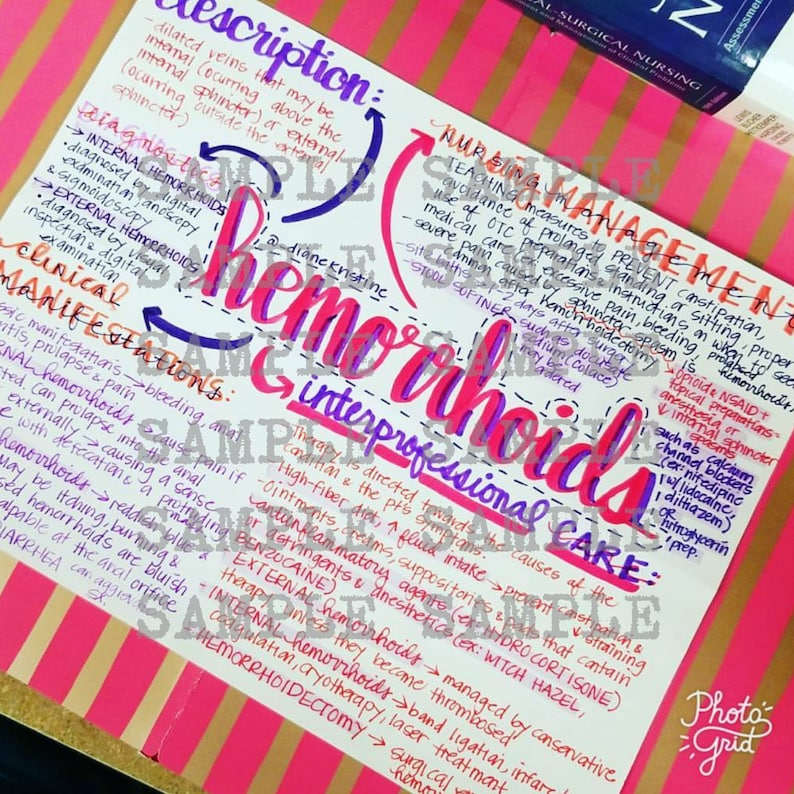 description:
- dilated veins that may be
internal (ocurring above the
internal sphincter) or external
(ocurring outside the external
sphincter)
diagnostics
→ INTERNAL HEMORRHOIDS
• diagnosed by digital
examination, anoscopy
& sigmoidoscopy
→ EXTERNAL HEMORRHOIDS
• diagnosed by visual
inspection & digital
examination
clinical
MANIFESTATIONS:
manifestations
manifestations → bleeding, anal
prolapse & pain
hemorrhoids → cause pain if
Can prolapse into the anal
externally → causing a sense
with defecation & a protruding
hemorrhoids → reddish blue &
may be itching, burning &
hemorrhoids are bluish
palpable at the anal orifice
DIARRHEA can aggravate
@dianekristine
hemorrhoids
NURSING MANAGEMENT
nursing management
TEACHING measures to PREVENT constipation,
avoidance of prolonged standing or sitting, proper
use of OTC preparations & instructions on when to seek
medical care
- severe pain, excessive bleeding, prolapsed hemorrhoids
STOOL SOFTNER such as docusate
(Colace)
may be ordered
sphincter spasm is
OPIOID & NSAID +
topical preparations =
anesthesia or
↓ internal sphincter
spasms
such as calcium
channel blockers
(ex: nifedipine
w/ lidocaine,
diltiazem)
OR
nitroglycerin
prep.
interprofessional CARE:
Therapy is directed towards the causes of the
condition & the pt's symptoms.
High-fiber diet & ↑ fluid intake → prevent constipation &
↓ straining
Ointments, creams, suppositories & pads that contain
antiinflammatory agents (ex: HYDROCORTISONE)
or astringents & anesthetics (ex: WITCH HAZEL,
BENZOCAINE)
EXTERNAL hemorrhoids → managed by conservative
therapy unless they become thrombosed
INTERNAL hemorrhoids → band ligation, infrared
coagulation, cryotherapy, laser treatment
HEMORRHOIDECTOMY → surgical
SAMPLE SAMPLE
SAMPLE SAMPLE
SAMPLE SAMPLE
SAMPLE SAMPLE
SAMPLE SAMPLE
SAMPLE SAMPLE
-SURGICAL NURSING
Assessment and Management of Clinical Problems
LEWIS
BUCHER
HEITKEMPER
HARDING
Photo
grid